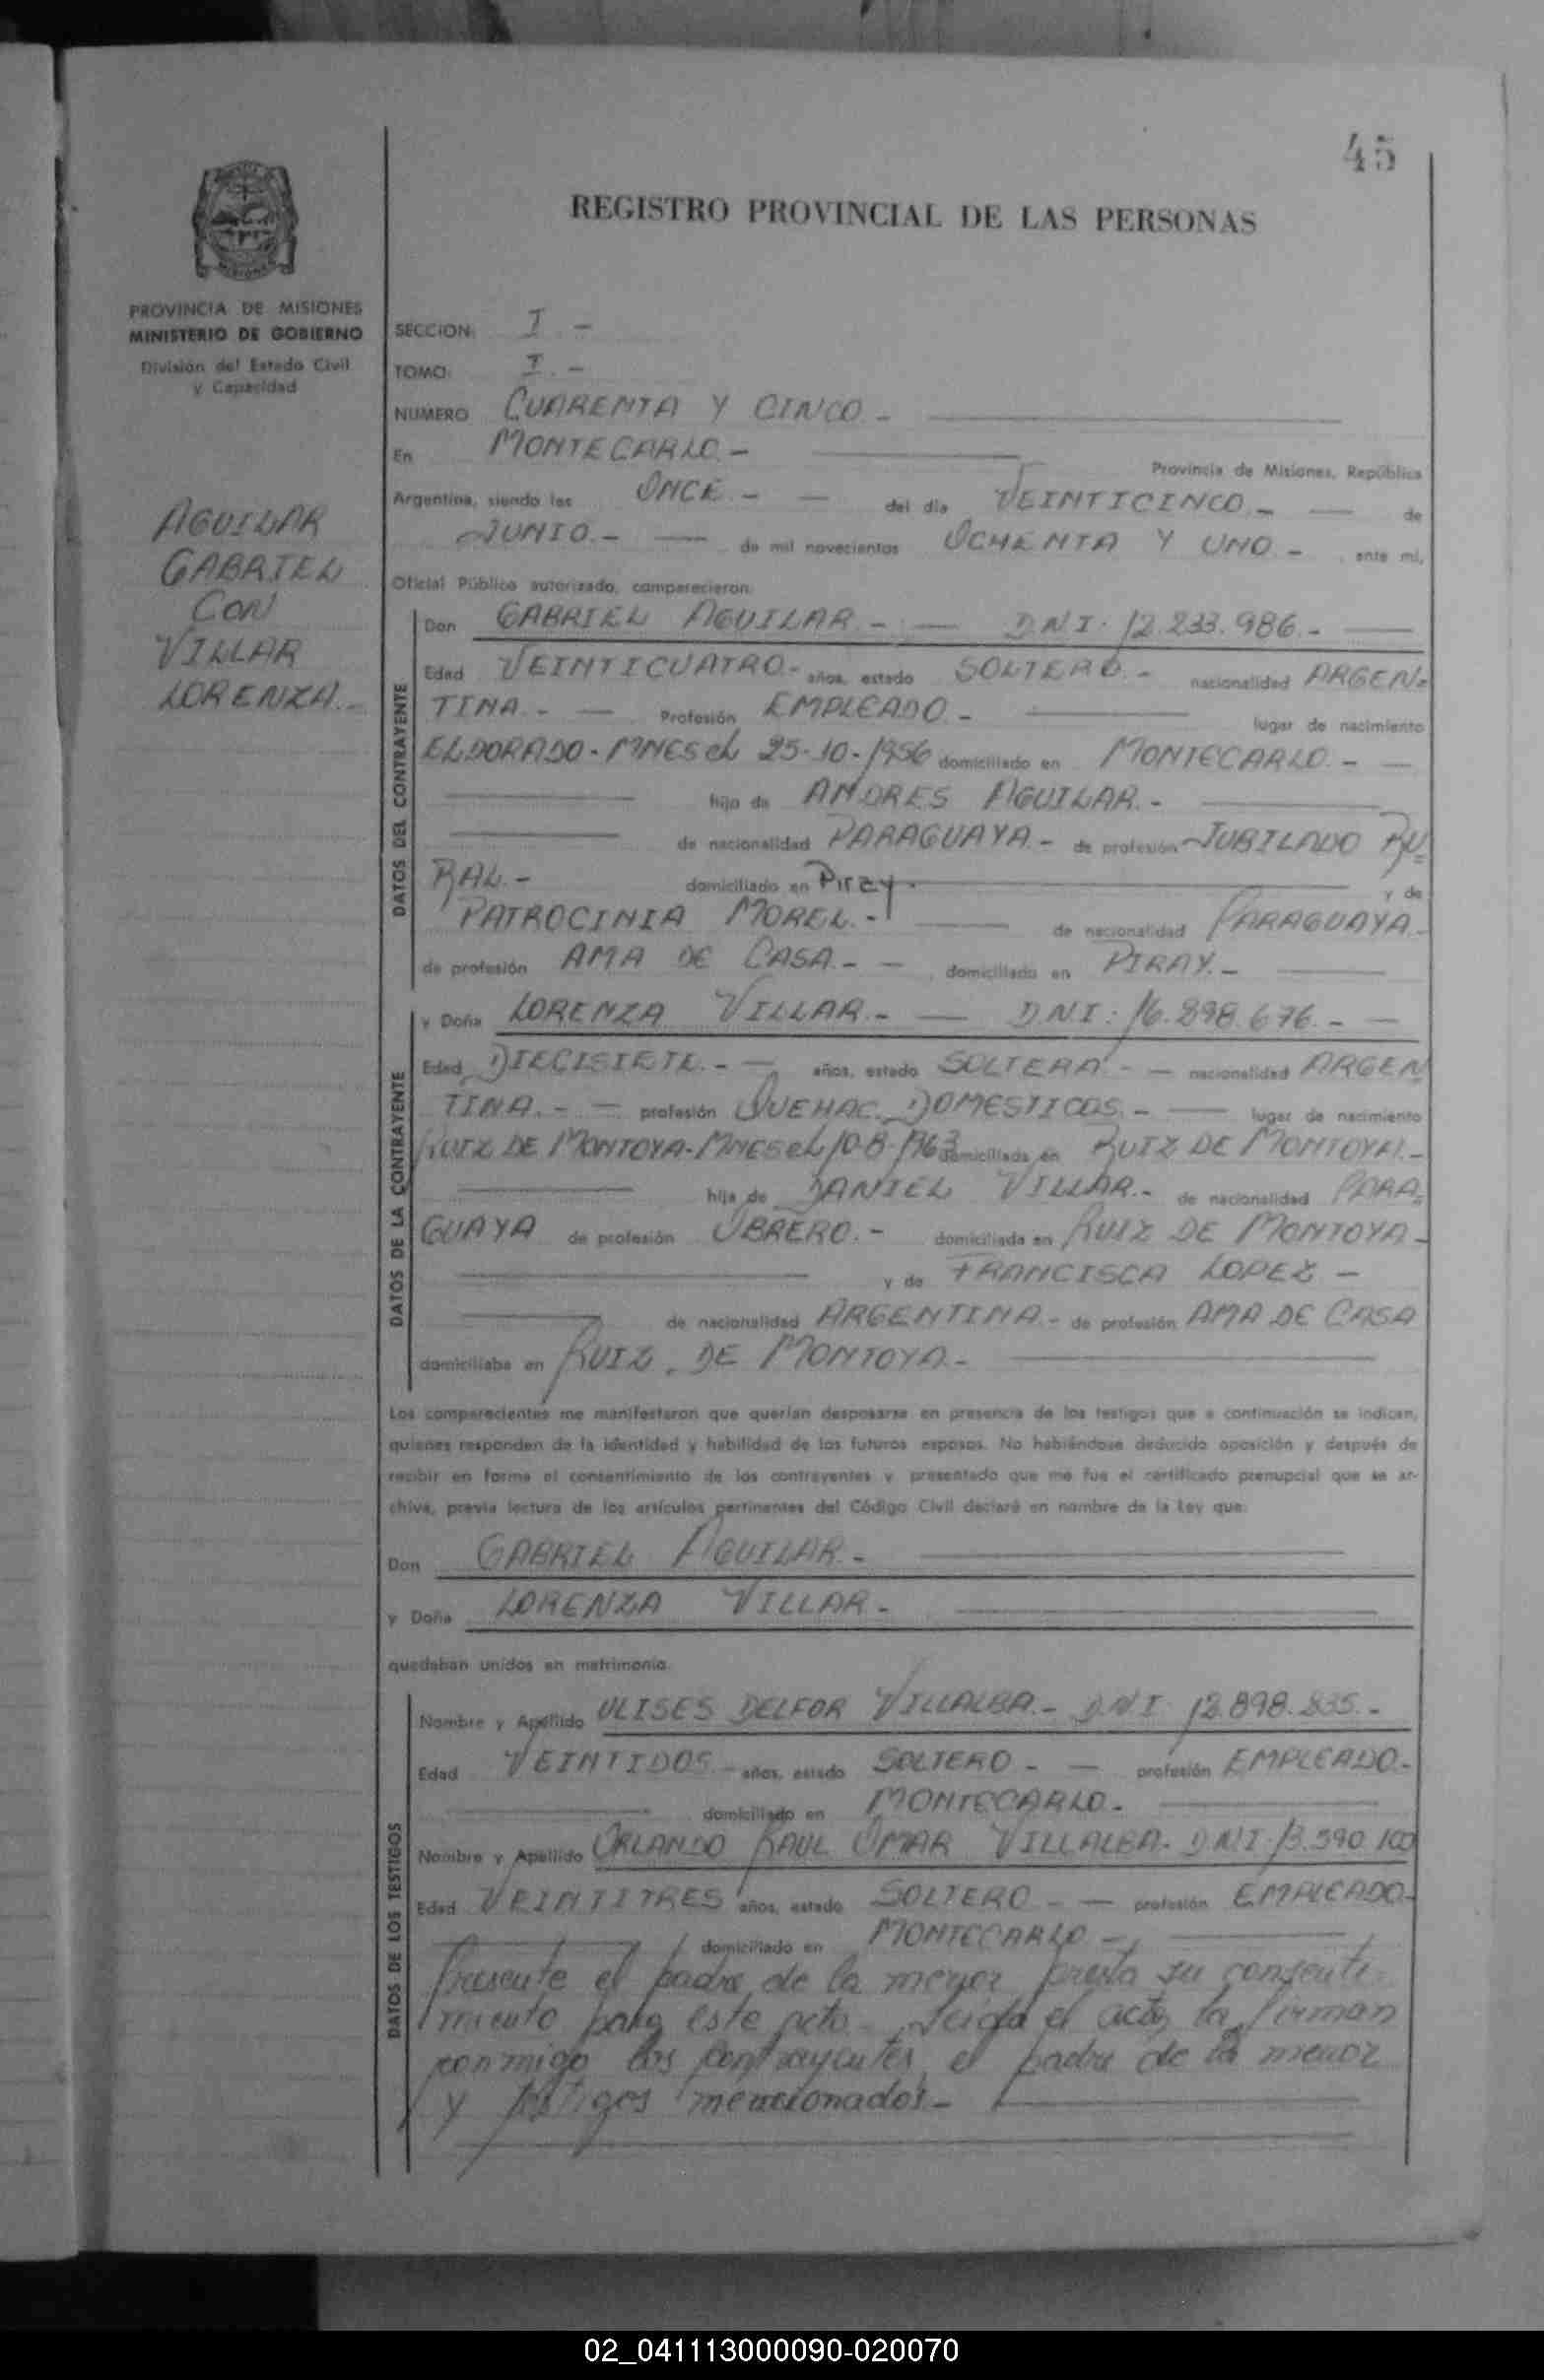 45
REGISTRO PROVINCIAL DE LAS PERSONAS
PROVINCIA DE MISIONES
MINISTERIO DE GOBIERNO
División del Estado Civil
y Capacidad
AGUILAR
GABRIEL
CON
VILLAR
LORENZA.-
SECCION: I.-
TOMO: I.-
NUMERO CUARENTA Y CINCO.-
En MONTECARLO.- Provincia de Misiones, República
Argentina, siendo las ONCE.- - del día VEINTICINCO.- - de
JUNIO.- - de mil novecientos OCHENTA Y UNO.- ante mi,
Oficial Público autorizado, comparecieron:
DATOS DEL CONTRAYENTE
Don GABRIEL AGUILAR.- - D.N.I. 12.233.986.-
Edad VEINTICUATRO.- años, estado SOLTERO.- nacionalidad ARGEN-
TINA.- - Profesión EMPLEADO.- lugar de nacimiento
ELDORADO-MNES el 25-10-1956 domiciliado en MONTECARLO.- -
hijo de ANDRES AGUILAR.-
de nacionalidad PARAGUAYA.- de profesión JUBILADO RU-
RAL.- domiciliado en Piray. y de
PATROCINIA MOREL.- de nacionalidad PARAGUAYA.-
de profesión AMA DE CASA.- - domiciliada en PIRAY.-
DATOS DE LA CONTRAYENTE
y Doña LORENZA VILLAR.- - D.N.I: 16.898.676.- -
Edad DIECISIETE.- - años, estado SOLTERA.- - nacionalidad ARGEN
TINA.- - profesión QUEHAC. DOMESTICOS.- lugar de nacimiento
RUIZ DE MONTOYA-MNES el 10-8-1963 domiciliada en RUIZ DE MONTOYA.-
hija de DANIEL VILLAR.- de nacionalidad PARA-
GUAYA de profesión OBRERO.- domiciliado en RUIZ DE MONTOYA.-
y de FRANCISCA LOPEZ -
de nacionalidad ARGENTINA.- de profesión AMA DE CASA
domiciliaba en RUIZ DE MONTOYA.-
Los comparecientes me manifestaron que querían desposarse en presencia de los testigos que a continuación se indican,
quienes responden de la identidad y habilidad de los futuros esposos. No habiéndose deducido oposición y después de
recibir en forma el consentimiento de los contrayentes y presentado que me fue el certificado prenupcial que se ar-
chiva, previa lectura de los artículos pertinentes del Código Civil declaré en nombre de la Ley que:
Don GABRIEL AGUILAR.-
y Doña LORENZA VILLAR.-
quedaban unidos en matrimonio.
DATOS DE LOS TESTIGOS
Nombre y Apellido ULISES DELFOR VILLALBA.- D.N.I 12.898.835.-
Edad VEINTIDOS.- años, estado SOLTERO.- - profesión EMPLEADO.-
domiciliado en MONTECARLO.-
Nombre y Apellido ORLANDO RAUL OMAR VILLALBA- D.N.I. 13.590.100
Edad VEINTITRES años, estado SOLTERO.- - profesión EMPLEADO-
domiciliado en MONTECARLO.-
Presente el padre de la menor presta su consenti-
miento para este acto.- Leida el acta, la firman
conmigo los contrayentes, el padre de la menor
y testigos mencionados.-
02_041113000090-020070